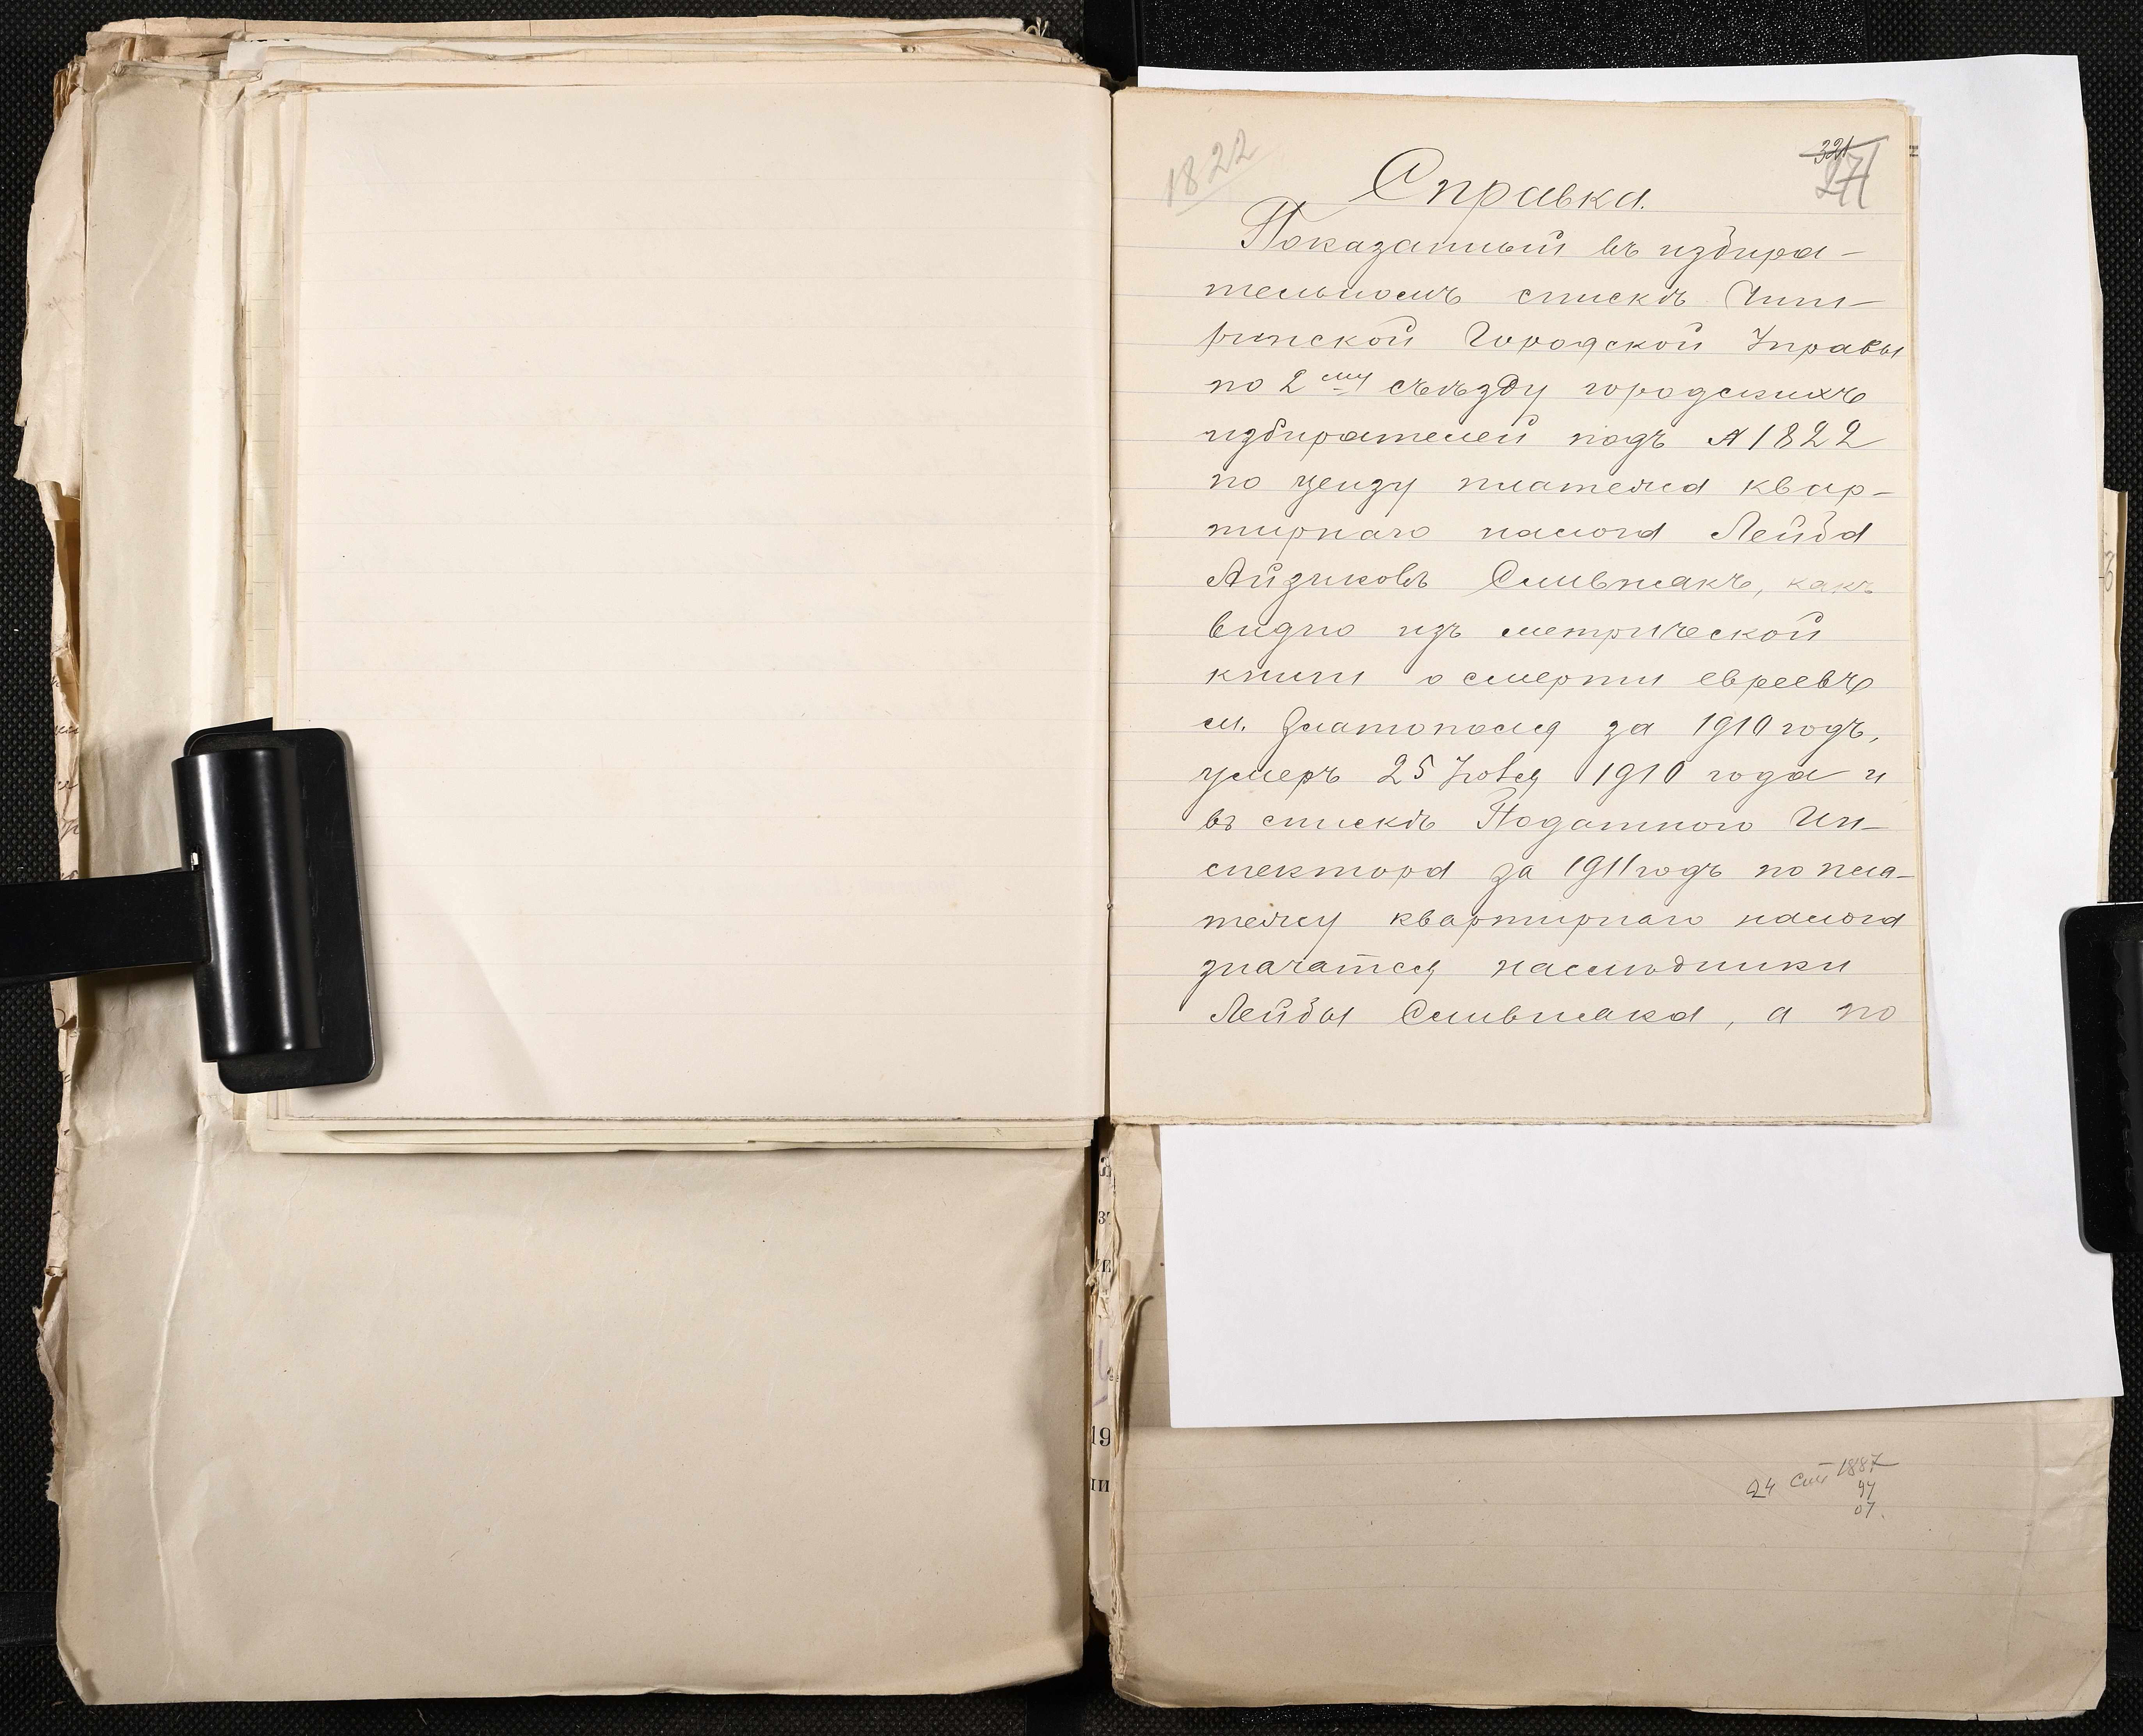 1822
321
271
Справка.
Показанный въ избира-
тельномъ спискѣ Чиги-
ринской Городской Управы
по 2му съѣзду городскихъ
избирателей подъ № 1822
по цензу платежа квар-
тирнаго налога Лейба
Айзиковъ Сливнакъ, какъ
видно изъ метрической
книги о смерти евреевъ
м. Златополя за 1910 годъ,
умеръ 25 Іюля 1910 года и
въ спискѣ Податного Ин-
спектора за 1911 годъ по пла-
тежу квартирнаго налога
значатся наслѣдники
Лейбы Сливнака, а по
19
24 1887
97
07.